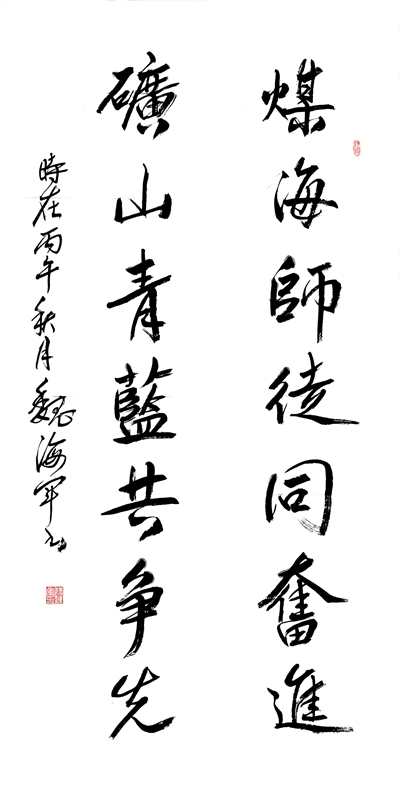 煤海師徒同奮進
礦山青藍共争先
時在丙午秋月魏海軍书